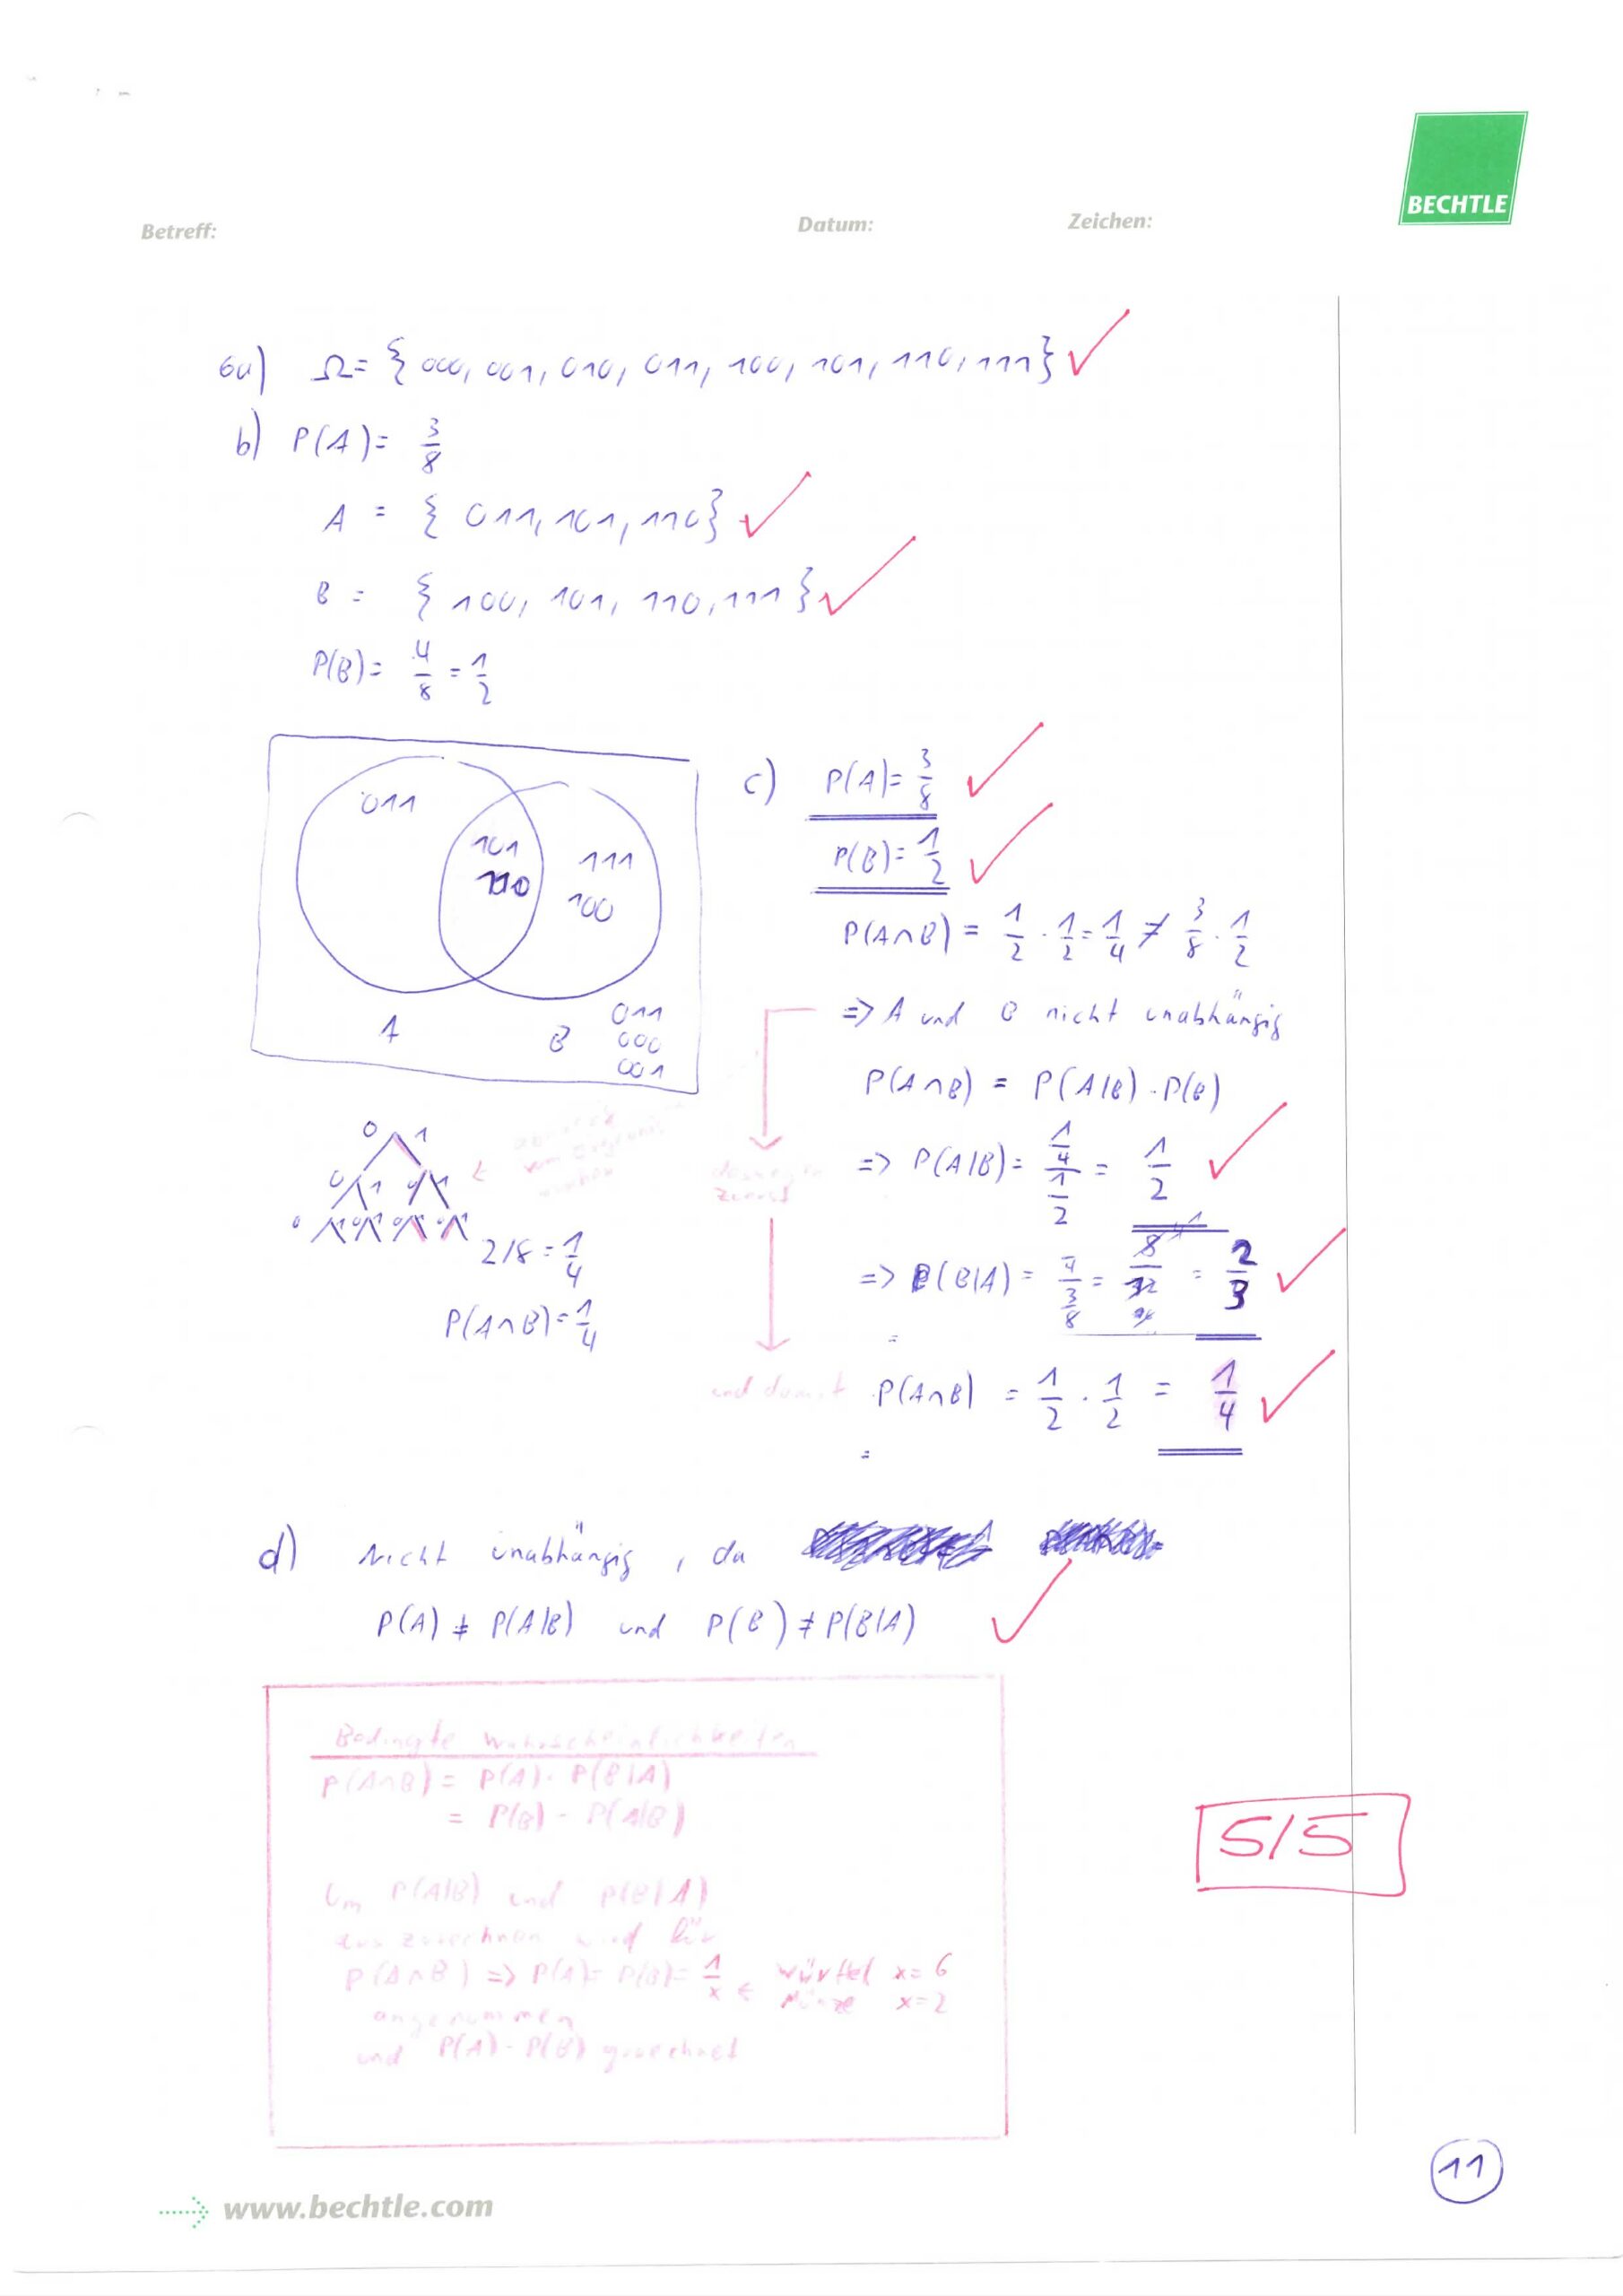 BECHTLE
Betreff: Datum: Zeichen:
6a) Ω = { 000, 001, 010, 011, 100, 101, 110, 111 }
b) P(A) = 3/8
A = { 011, 101, 110 }
B = { 100, 101, 110, 111 }
P(B) = 4/8 = 1/2
011
101
110
111
100
A B
011
000
001
c) P(A) = 3/8
P(B) = 1/2
P(A∩B) = 1/2 · 1/2 = 1/4 ≠ 3/8 · 1/2
=> A und B nicht unabhängig
P(A∩B) = P(A|B) · P(B)
=> P(A|B) = 1/4 / 1/2 = 1/2
=> P(B|A) = 1/4 / 3/8 = 8/12 = 2/3
und damit P(A∩B) = 1/2 · 1/2 = 1/4
deswegen
zuerst
0 1
0 1 0 1
0 1 0 1 0 1 0 1
2/8 = 1/4
P(A∩B) = 1/4
d) Nicht unabhängig, da
P(A) ≠ P(A|B) und P(B) ≠ P(B|A)
Bedingte Wahrscheinlichkeiten
P(A∩B) = P(A) · P(B|A)
= P(B) · P(A|B)
Um P(A|B) und P(B|A)
auszurechnen wird für
P(A∩B) => P(A) = P(B) = 1/x ← Würfel x=6
Münze x=2
angenommen
und P(A) · P(B) gerechnet
5/5
11
www.bechtle.com